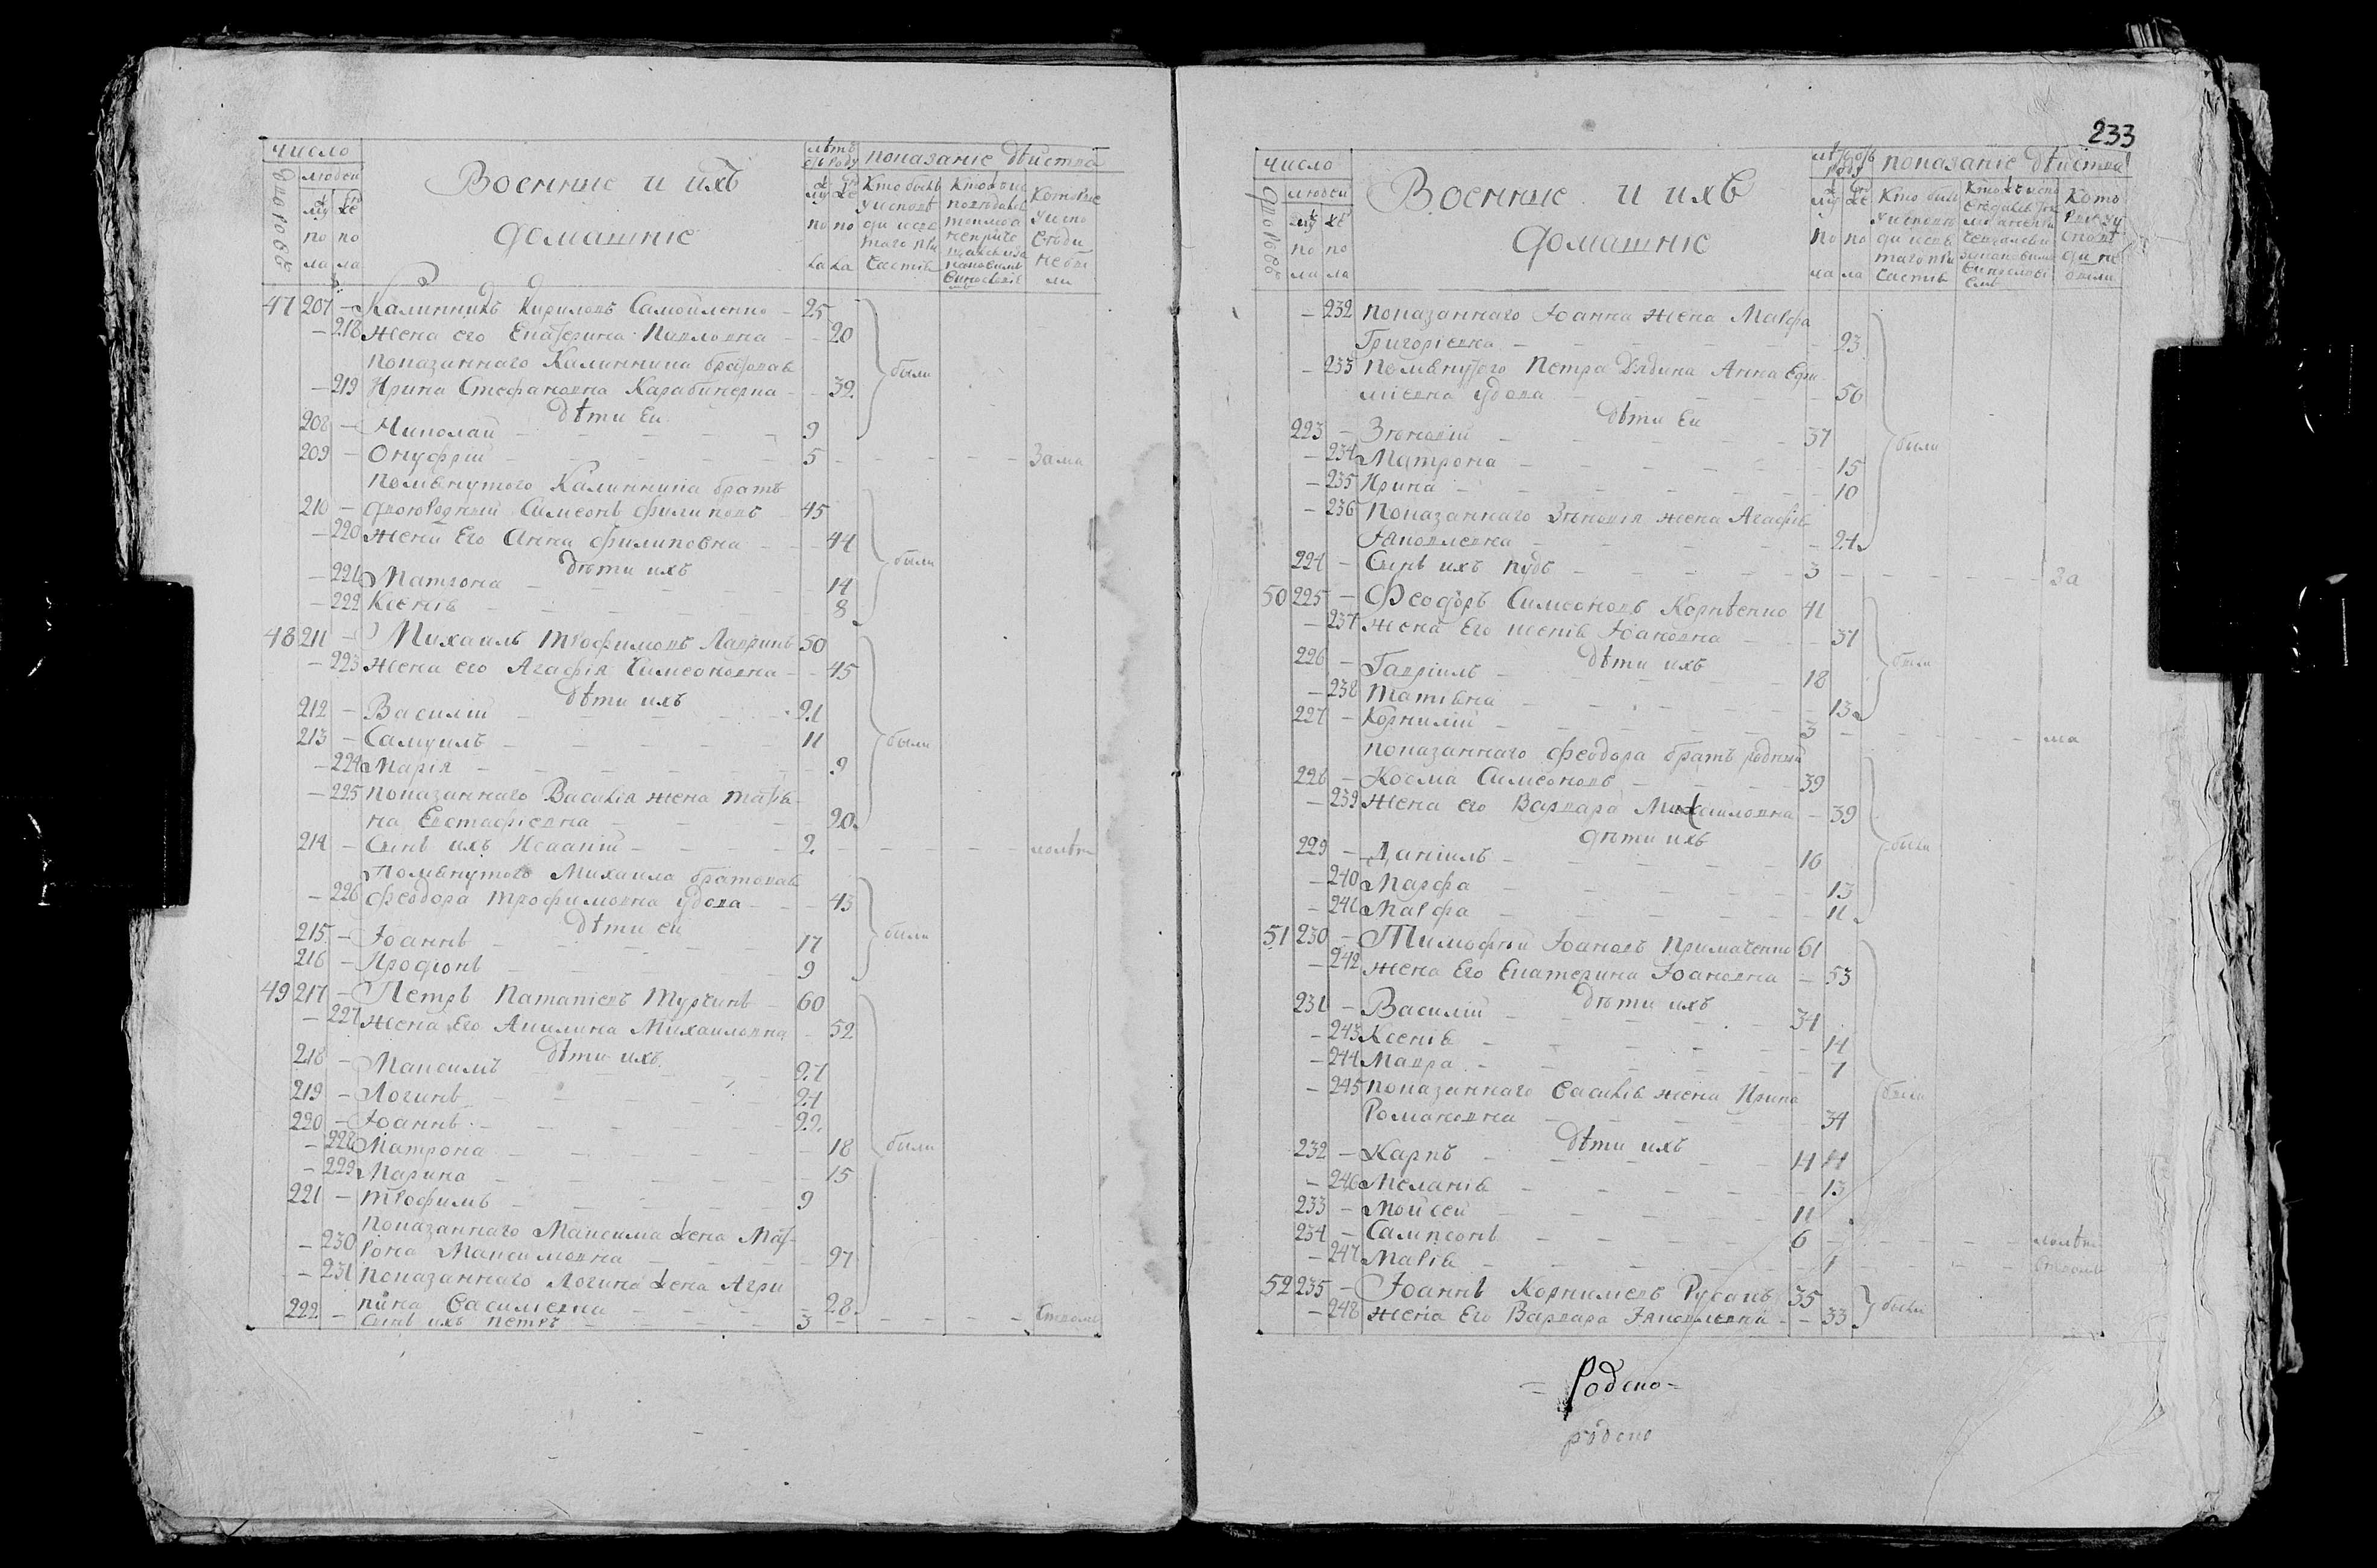 число
людей
дворовъ
му же
по по
ла ла
Военние и ихъ
домашніе
лѣтъ
отъ роду
му же
по по
ла ла
показаніе дѣйства
Кто былъ
у исповѣ
ди и свя
таго при
частія
Которие
у испо
вѣди
не бы
ли
47 207 – Калинникъ Кириловъ Самойленко – 25
– 218 жена его Екатерина Павловна – – 20
показаннаго Калинника братовая
– 219 Ирина Стефановна Карабинерка – – 32
были
дѣти еи
208 – Николай – 9
209 – Онуфрій – 5 – – – – за ма
помянутого Калинника братъ
210 – двоюродный Симеонъ Филиповъ – 45
– 220 жена Его Анна Филиповна – – 44
дѣти ихъ
были
– 221 Матрона – 14
– 222 Ксенія – 8
48 211 – Михаилъ Трофимовъ Лавринъ 50
– 223 жена его Агафія Симеоновна – – 45
дѣти ихъ
212 – Василій – 21
213 – Самуилъ – 11
были
– 224 Марія – 9
– 225 показаннаго Василія жена Татія-
на Евстафіевна – 20
214 – Синъ ихъ Исаакій – 2 – – – – молѣт
Помянутого Михаила братовая
– 226 Феодора Трофимовна удова – – 43
дѣти еи
были
215 – Іоаннъ – 17
216 – Иродіонъ – 9
49 217 – Петръ Патапіевъ Турчинъ – 60
– 227 жена Его Акилина Михаиловна – 52
дѣти ихъ
218 – Максимъ – 27
219 – Логинъ – 24
220 – Іоаннъ – 22
– 228 Матрона – 18
были
– 229 Марина – 15
221 – Трофимъ – 9
показаннаго Максима жена Мат-
– 230 рона Максимовна – 27
– 231 показаннаго Логина жена Агри
пина Василіевна – 28
222 – Синъ ихъ Петръ – 3 – – – –
233
число
людей
дворовъ
му же
по по
ла ла
Военние и ихъ
домашніе
лѣтъ отъ
роду
му же
по по
ла ла
показаніе дѣйства
Кто былъ
у исповѣ
ди и свя
таго при
частія
Кото
рие у
исповѣ
ди не
были
– 232 показаннаго Іоанна жена Марфа
Григоріевна – 23
– 233 помянутого Петра дядина Анна Ефи-
міевна удова – 56
дѣти еи
223 – Зѣновій – 37
были
– 234 Матрона – 15
– 235 Ирина – 10
– 236 показаннаго Зѣновія жена Агафія
Іаковлевна – 24
224 – Синъ ихъ Іудъ – 3 – – – – за
50 225 – Феодоръ Симеоновъ Корнѣенко 41
– 237 жена Его Ксенія Іоановна – 37
дѣти ихъ
были
226 – Гавріилъ – 18
– 238 Татіяна – 13
227 – Корнилій – 3 – – – – ма
показаннаго Феодора братъ родный
228 – Косма Симеоновъ – 39
– 239 жена его Варвара Михаиловна – 39
дѣти ихъ
были
229 – Даніилъ – 16
– 240 Марфа – 13
– 241 Марфа – 11
51 230 – Тимофѣй Іоановъ Примаченко 61
– 242 жена Его Екатерина Іоановна – 53
дѣти ихъ
231 – Василій – 34
– 243 Ксенія – 14
– 244 Мавра – 7
– 245 показаннаго Василія жена Ирина
были
Романовна – 34
дѣти ихъ
232 – Карпъ – 14
– 246 Меланія – 13
233 – Мойсей – 11
234 – Сампсонъ – 6 – – – – молѣт
– 247 Марія – 1 – – – –
52 235 – Іоаннъ Корниліевъ Русанъ 35
– 248 жена Его Варвара Іаковлевна – – 33 были